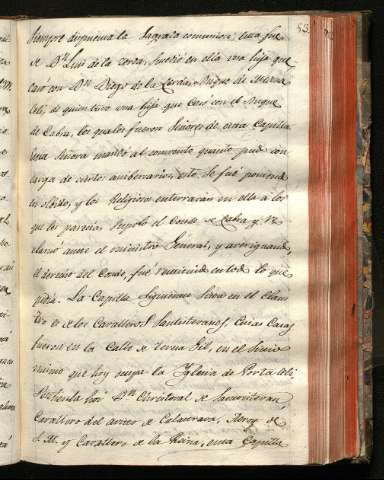 53.
siempre dispuesta la Sagrada comunion: esta fue
de Dn. Luis de la Cerda, sucedió en ella una hija que
casó con Dn. Diego de la Cerda, Duque de Medina
Celi, de quien tuvo una hija que casó con el Duque
de Cabra, los quales fueron Señores de esta Capilla.
Esta Señora mandó al convento quanto pudo con
carga de ciertos aniversarios, esto se fué poniendo
en olvido, y los Religiosos enterravan en ella á los
que les parecia. Supolo el Conde de Cabra, y re
clamó ante el ministro General, y averiguando
el derecho del Conde, fué reintegrado en todo lo que
pedia. La Capilla Siguiente Sita en el Claus
tro es de los Cavalleros Santisteravanes, cuias Casas
fueron en la Calle de Terna Gil, en el Sitio
mismo que hoy ocupa la Yglesia de Portaceli
por Dn. Christoval de Santisteravan,
Cavallero del avito de Calatrava, de
S. M. y Cavallero de la Reina, esta Capilla